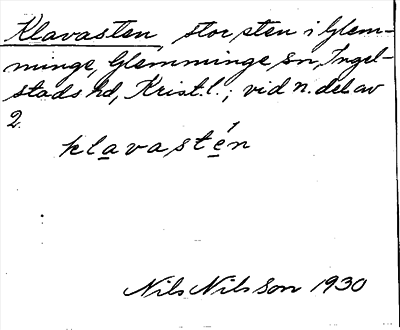 Klavasten, stor sten i Glem-
minge, Glemminge sn, Ingel-
stads hd, Krist. l.; vid n. del av
2
klavastén
Nils Nilsson 1930